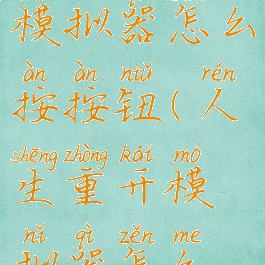 模拟器怎么
àn àn niǔ rén
按按钮(人
shēng zhòng kāi mó
生重开模
nǐ qì zěn me
拟器怎么